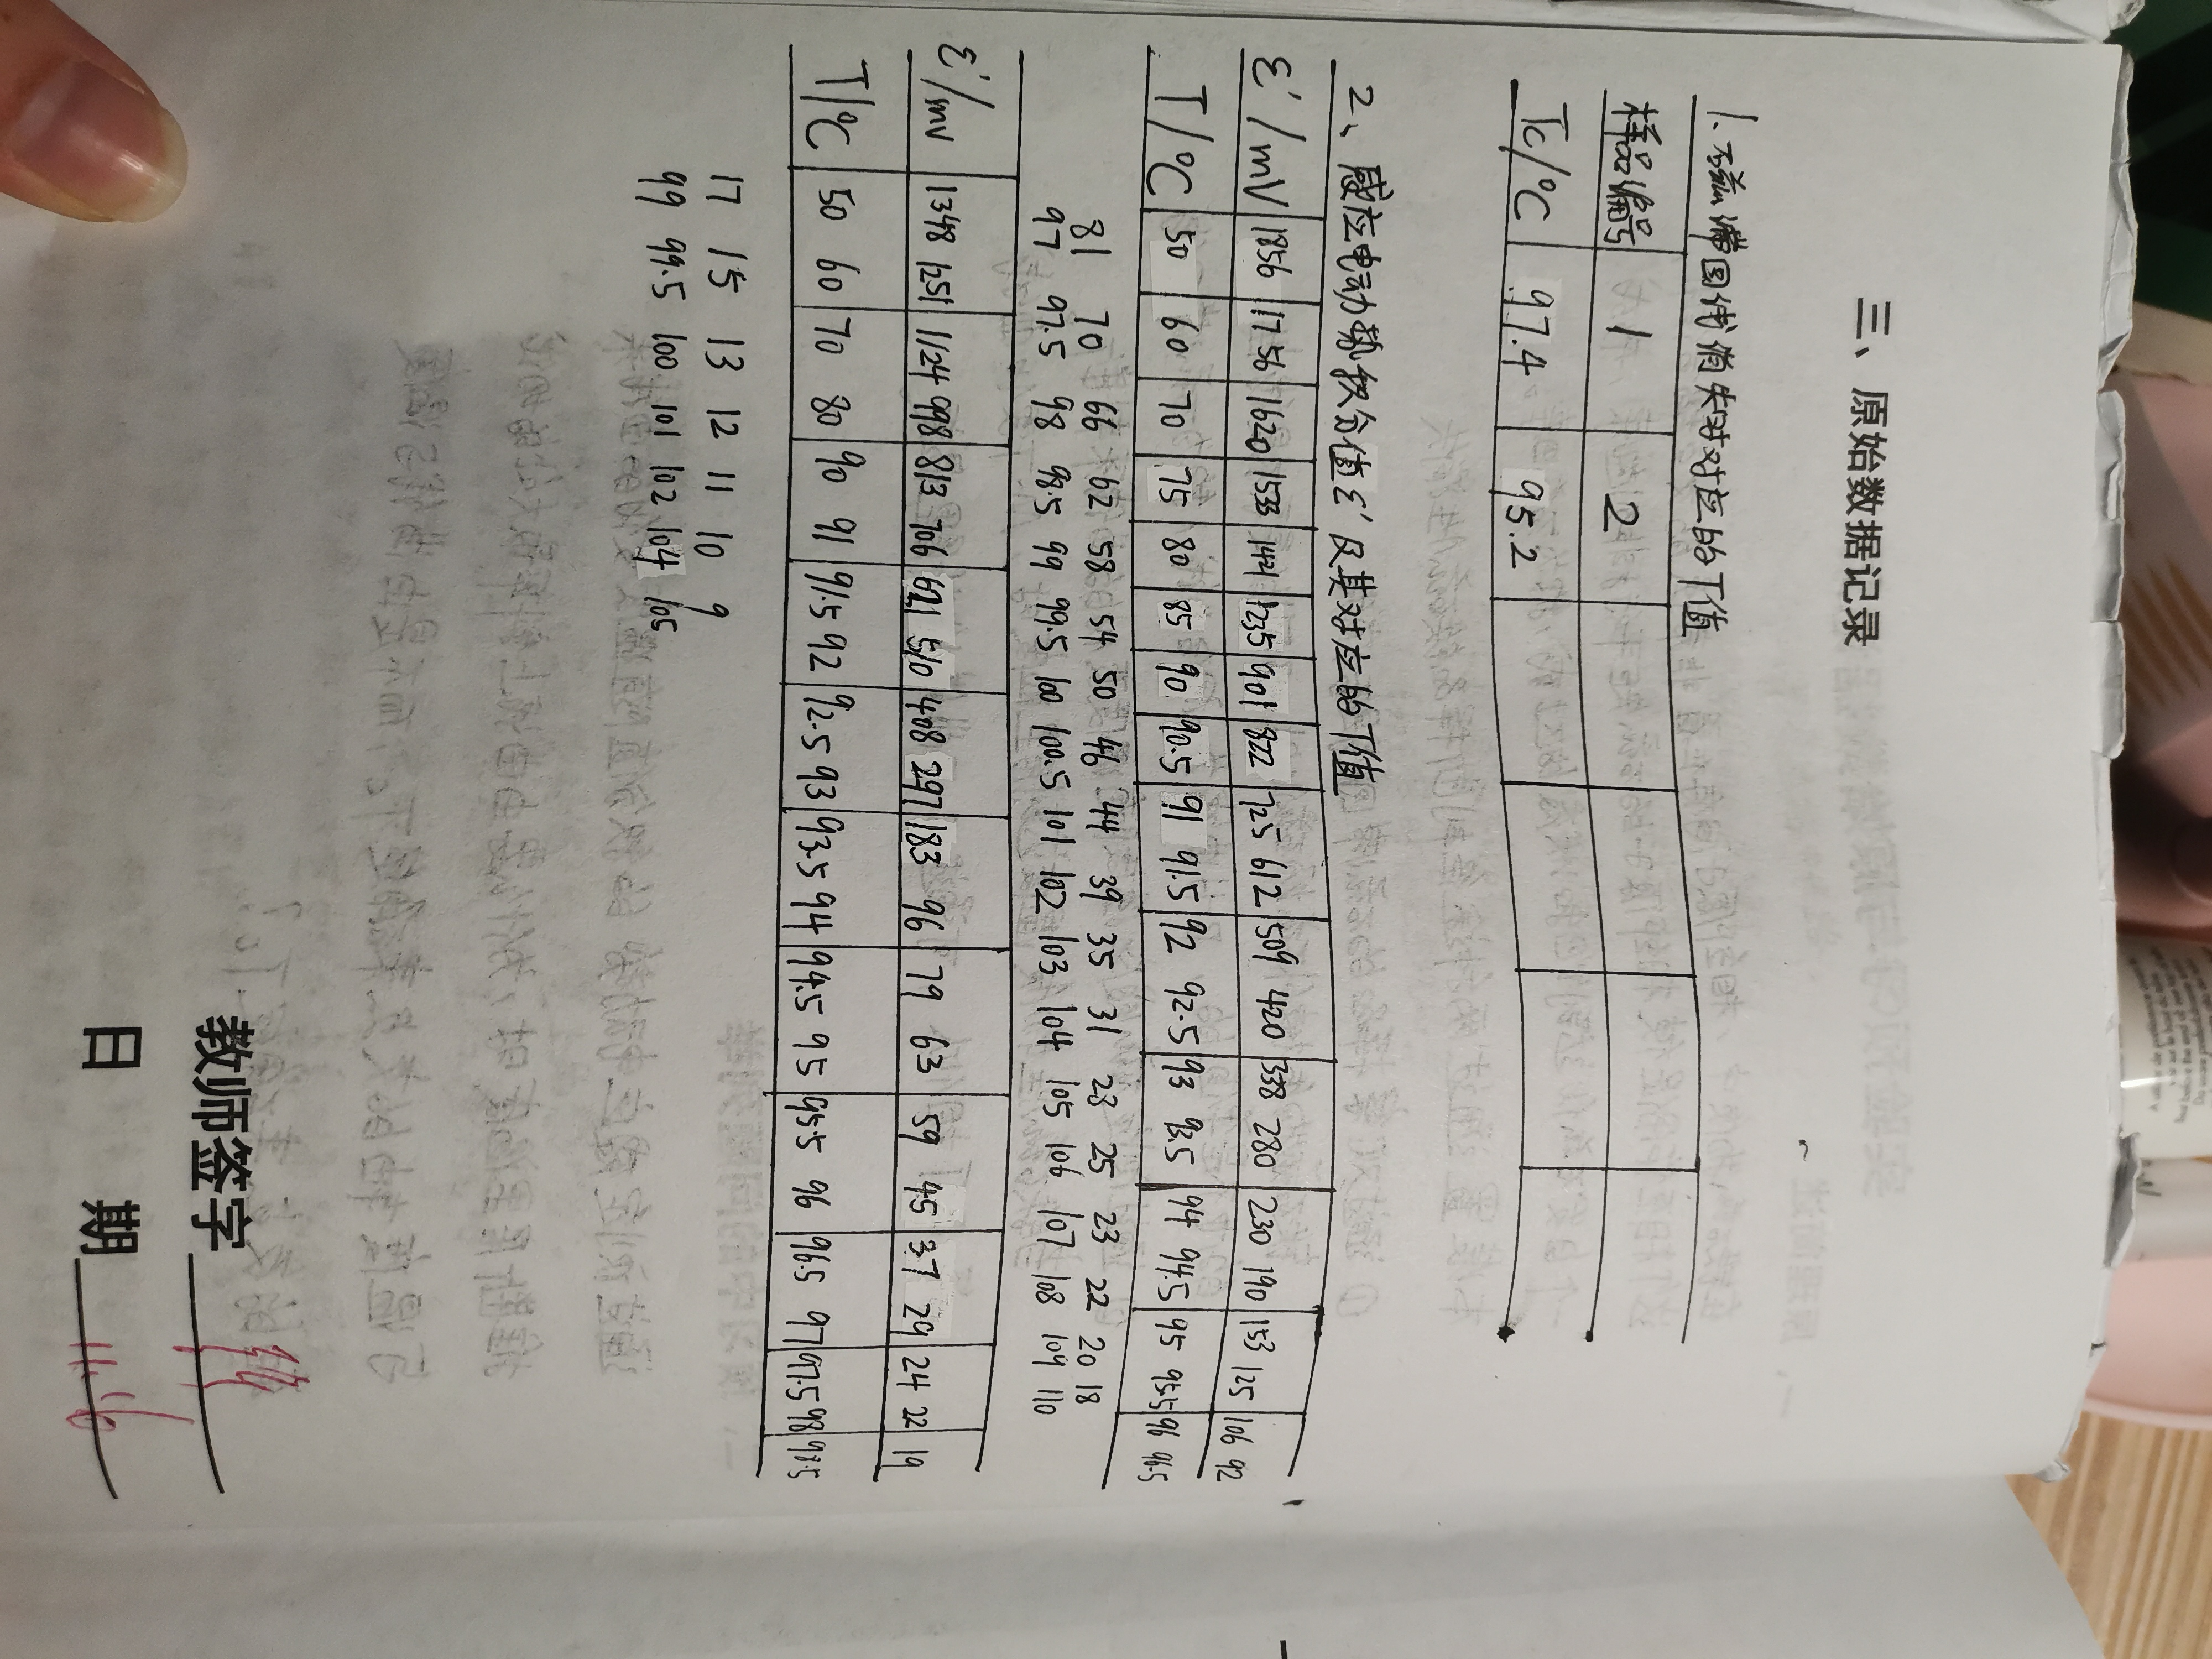 三、原始数据记录
1.磁滞回线消失时对应的T值
样品编号 1 2
Tc/°C 97.4 95.2
2、感应电动势积分值ε'及其对应的T值
ε'/mV 1856 1756 1620 1533 1421 1235 901 822 725 612 509 420 338 280 230 190 153 125 106 92
T/°C 50 60 70 75 80 85 90 90.5 91 91.5 92 92.5 93 93.5 94 94.5 95 95.5 96 96.5
81 70 66 62 58 54 50 46 44 39 35 31 23 25 23 22 20 18
97 97.5 98 98.5 99 99.5 100 100.5 101 102 103 104 105 106 107 108 109 110
ε'/mV 1348 1251 1124 998 813 706 621 510 408 297 183 96 79 63 59 45 37 29 24 22 19
T/°C 50 60 70 80 90 91 91.5 92 92.5 93 93.5 94 94.5 95 95.5 96 96.5 97 97.5 98 98.5
17 15 13 12 11 10 9
99 99.5 100 101 102 104 105
教师签字
日 期 11.16